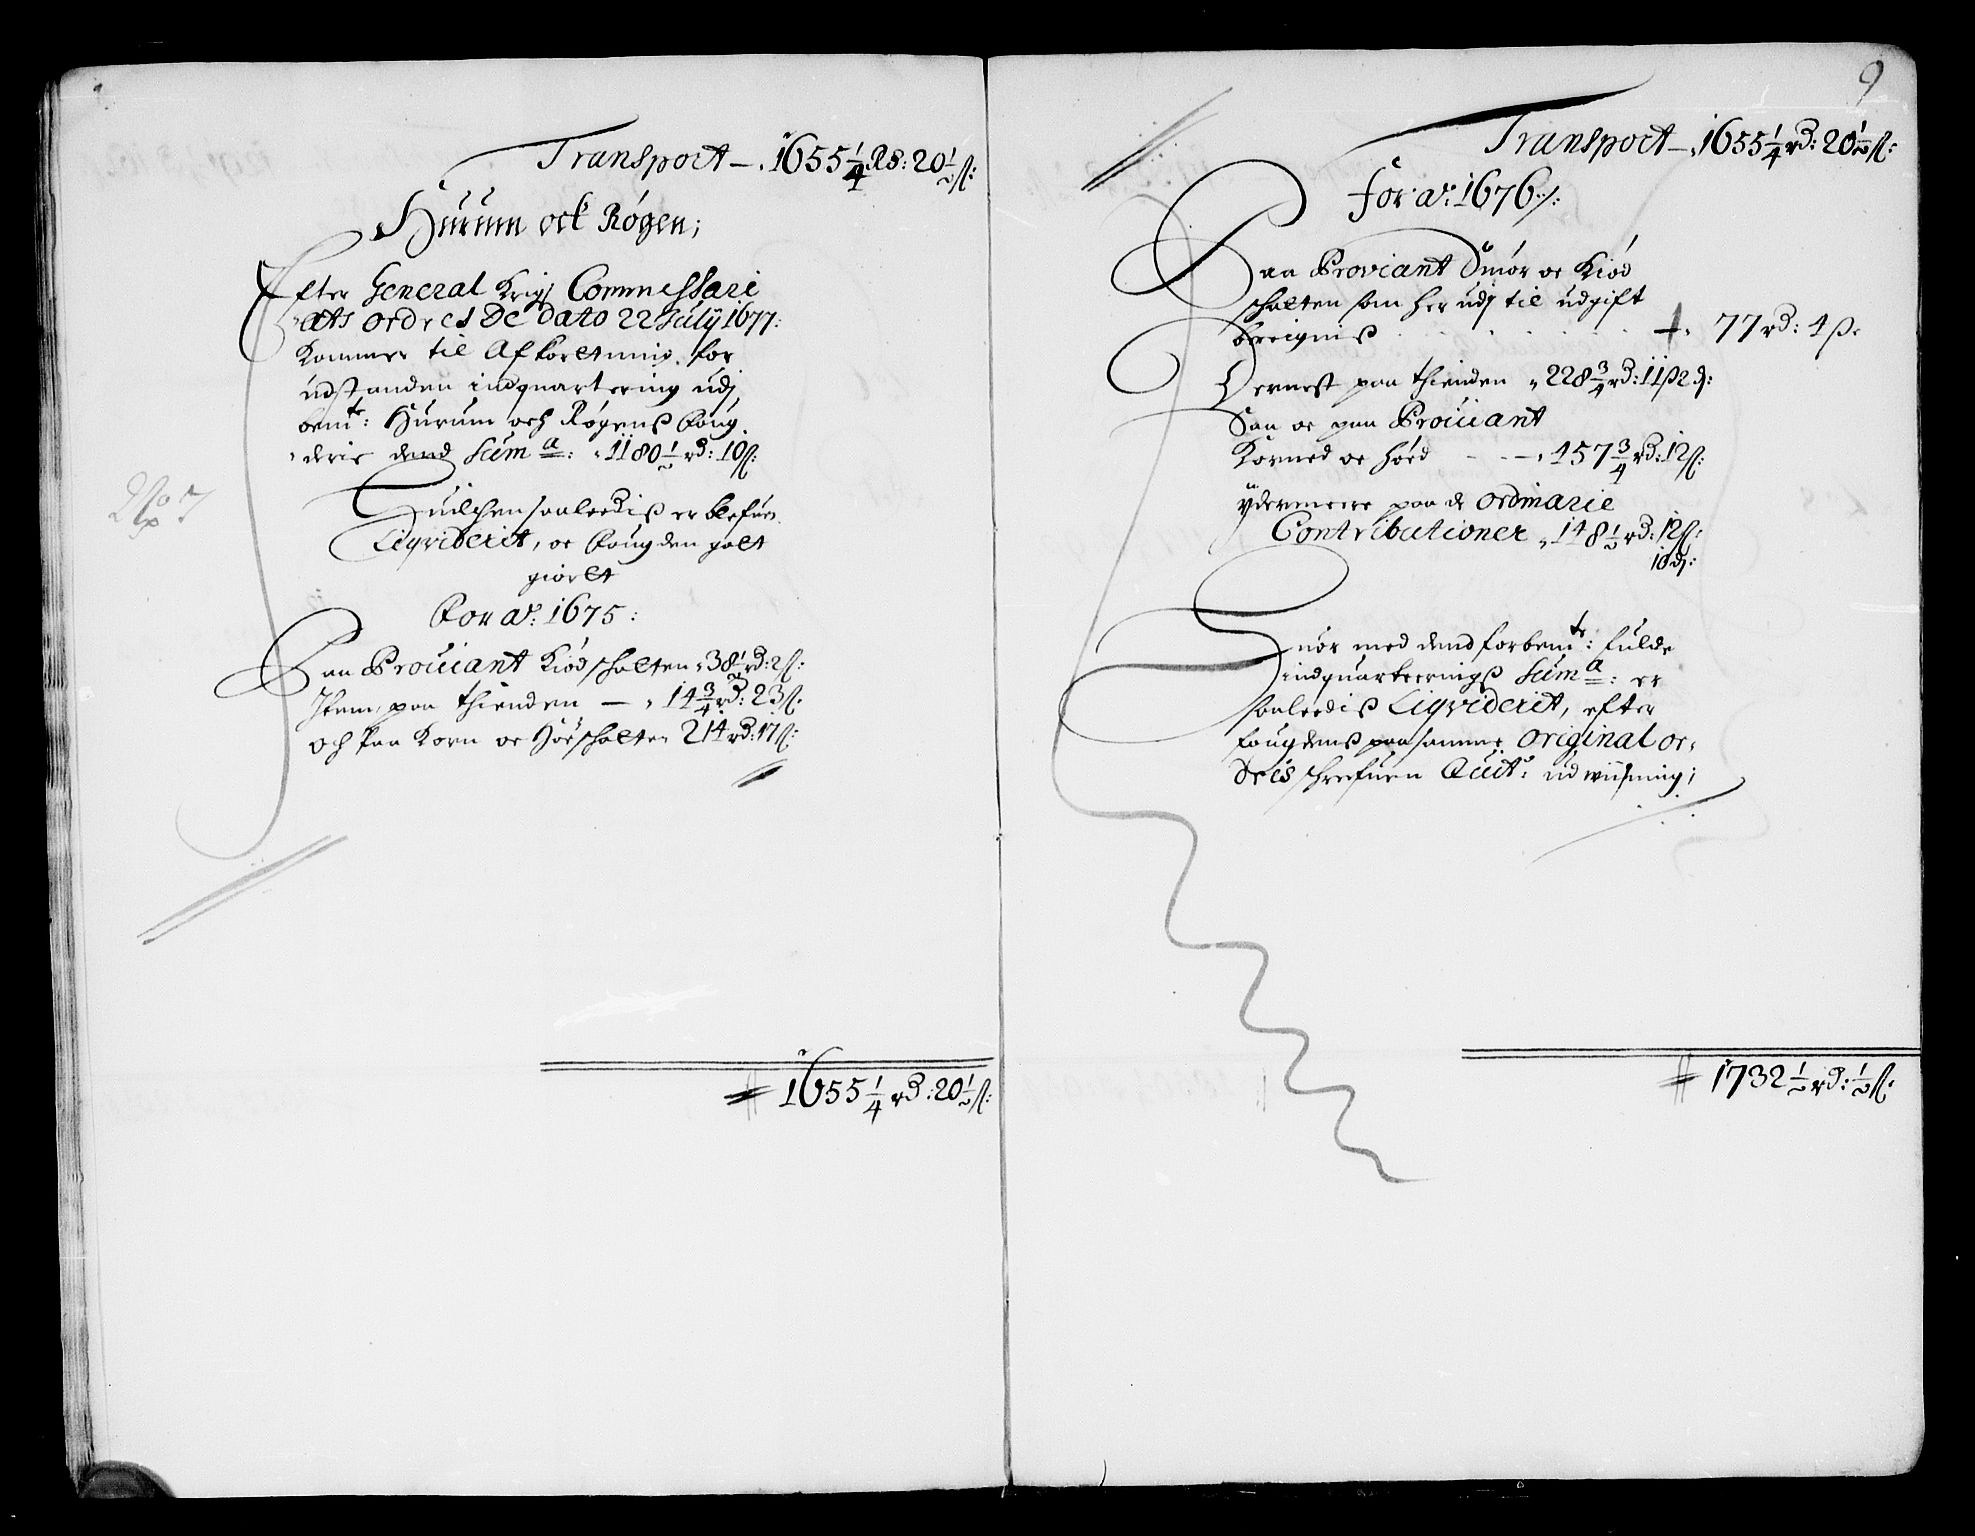 Transport — 1655 1/4 Rd: 20 1/2 ß:
Hurum ock Røgen;
Efter General Krigs Commessari
ats ordres De dato 22 July 1677:
Kommer til Afkortning for
udstanden indquartering udj
bem.te: Hurum och Røgens foug
derie dend Sum a: 1180 1/2 rd: 10 ß:
No 7
Huilchen saaledis er blefuen
Liqviderit, oc fougden godt
giort
For Ao: 1675:
Paa Prouiant Kiødschatten 38 1/2 rd: 2 ß:
Item, paa thienden — 14 3/4 rd: 23 ß:
och paa Korn oc Høeschatten 214 rd: 17 ß:
1655 1/4 rd: 20 1/2 ß:
9
Transport — 1655 1/4 rd: 20 1/2 ß:
for ao: 1676:/:
Paa Proviant Smør oc Kiød
schatten som her udj til udgift
bereignis . . . . . 77 rd: 1 ß
Dernest paa thienden 228 3/4 rd: 11 ß 2 d:
Saa oc paa Prouiant
Korned oc høed — 457 3/4 rd: 12 ß:
ydermeere paa de ordinarie
Contributioner 148 1/2 rd: 12 ß:
10 d:
Huor med dend forbem.te: fulde
indquarteerings Sum a: er
saaledis Liqviderit, efter
fougdens paa samme original or,
dres schrefuen Quit: udwiisning;
1732 1/2 rd: 1/2 ß: